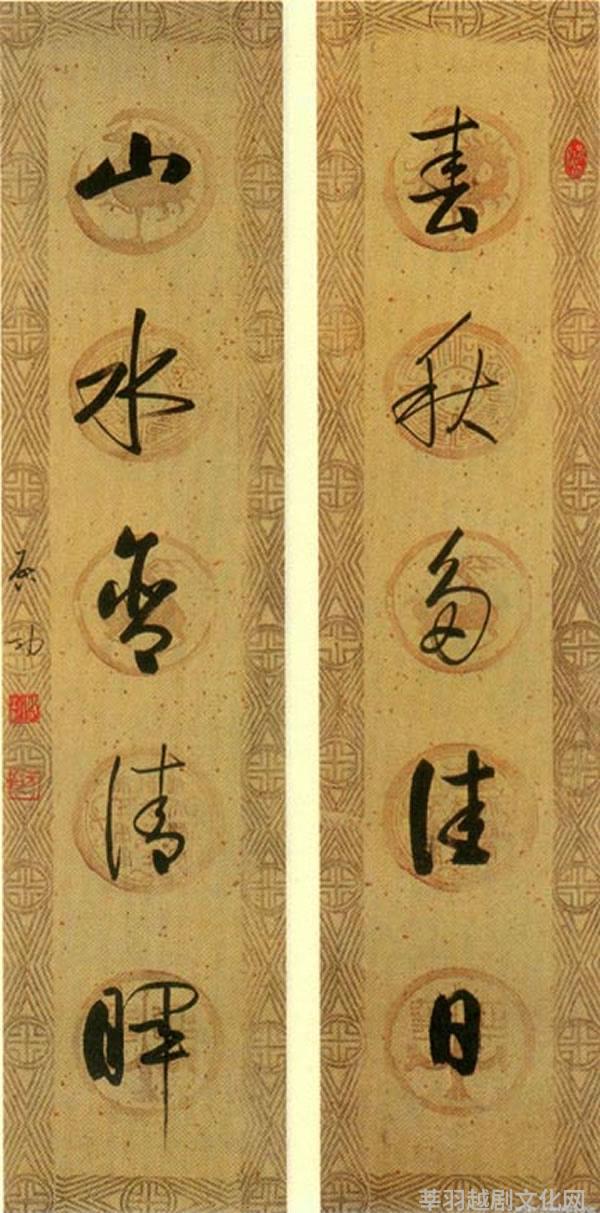 春秋多佳日
山水含清晖
启功
莘羽越剧文化网